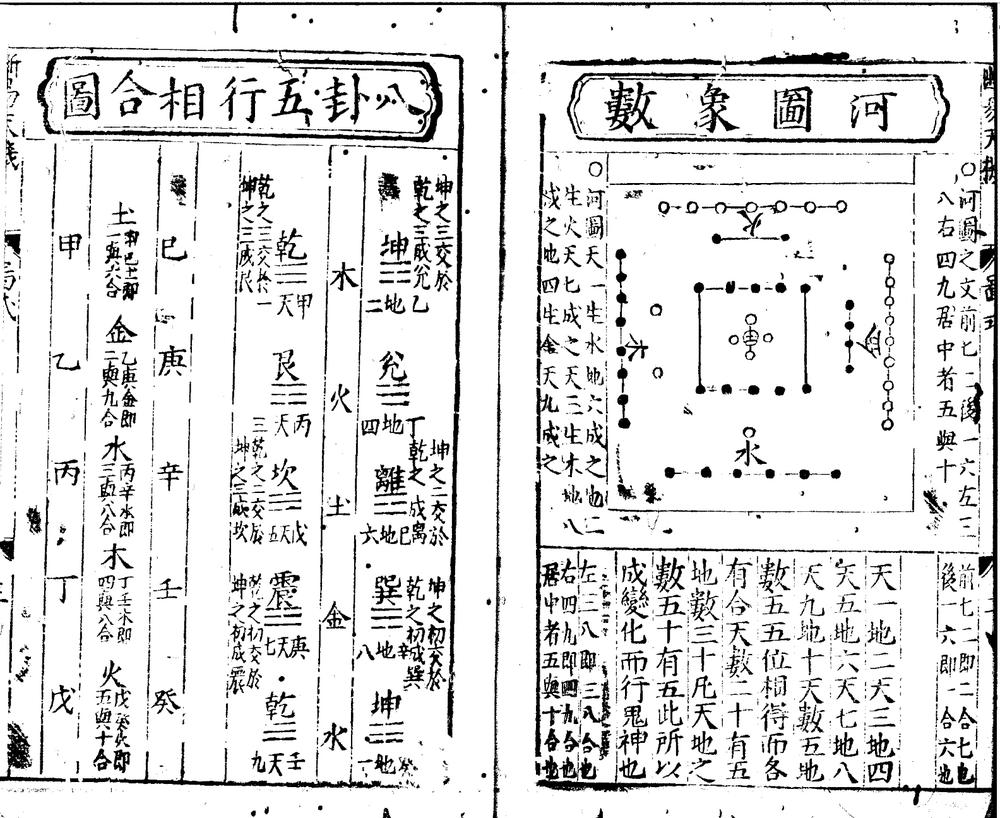 河圖象數
○河圖之文前七二後一六左三
八右四九居中者五與十
火
中
木
水
○河圖天一生水地六成之地二
生火天七成之天三生木地八
成之地四生金天九成之
前七二即二合七也
後一六即一合六也
天一地二天三地四
天五地六天七地八
天九地十天數五地
數五五位相得而各
有合天數二十有五
地數三十凡天地之
數五十有五此所以
成變化而行鬼神也
左三八即三八合也
右四九即四九合也
居中者五與十合也
八卦五行相合圖
坤之三交於
乾之三成兌
坤之二交於
乾之 成离
坤之初交於
乾之初成巽
坤 地二 乙
兌 地四 丁
離 地六 巳
巽 地八 辛
坤 地一 癸
水 火 土 金 水
乾 天一 甲
艮 天三 丙
坎 天五 戊
震 天七 庚
乾 天九 壬
乾之三交於
坤之三成艮
乾之二交於
坤之二成坎
乾之初交於
坤之初成震
巳 庚 辛 壬 癸
土 甲巳土即一與六合
金 乙庚金即二與九合
水 丙辛水即三與八合
木 丁壬木即四與八合
火 戊癸火即五與十合
甲 乙 丙 丁 戊